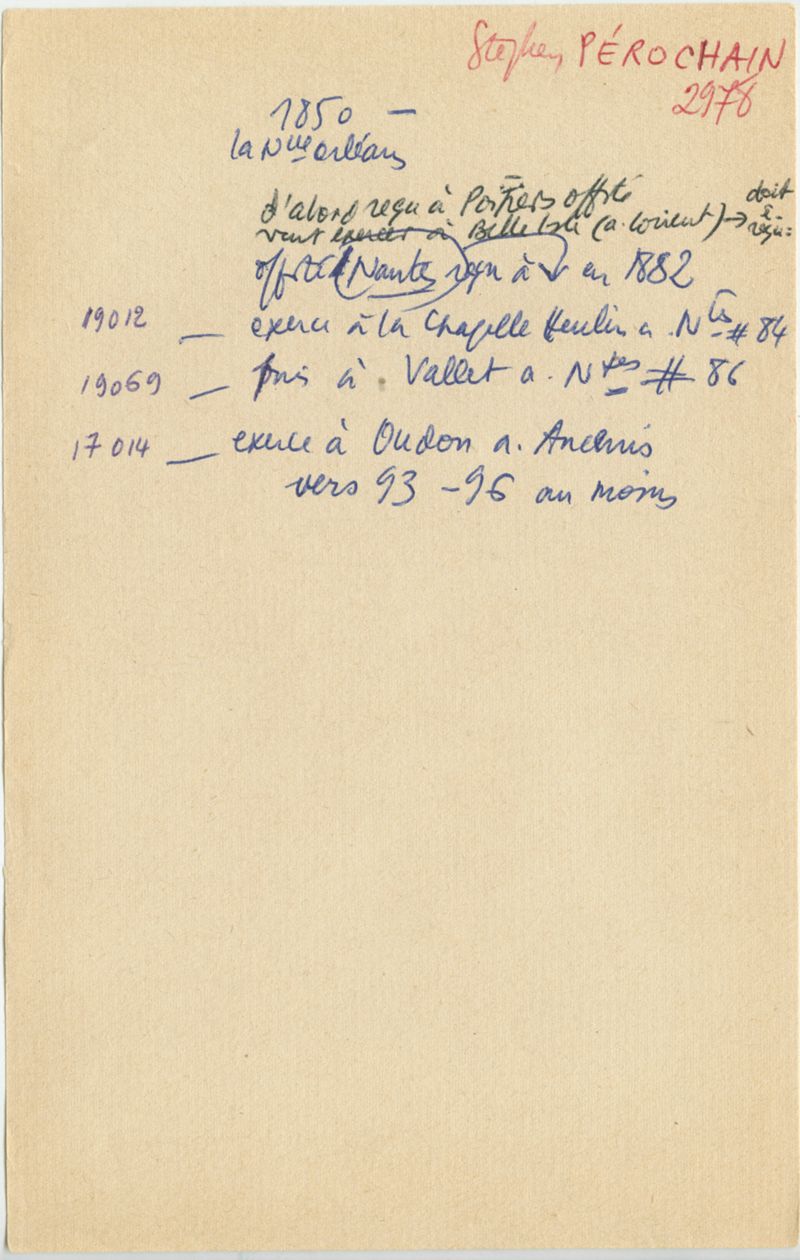 Stephen PÉROCHAIN
2978
1850 —
la Nlle orléans
d'abord reçu à Poitiers offté
veut exercer à Belle Isle (a. Lorient) → doit ê. reçu:
offté Nantes reçu à ↓ en 1882
19012 — exerce à la Chapelle Heulin a. Ntes # 84
19069 — puis à Vallet a. Ntes # 86
17014 — exerce à Oudon a. Ancenis
vers 93 - 96 au moins